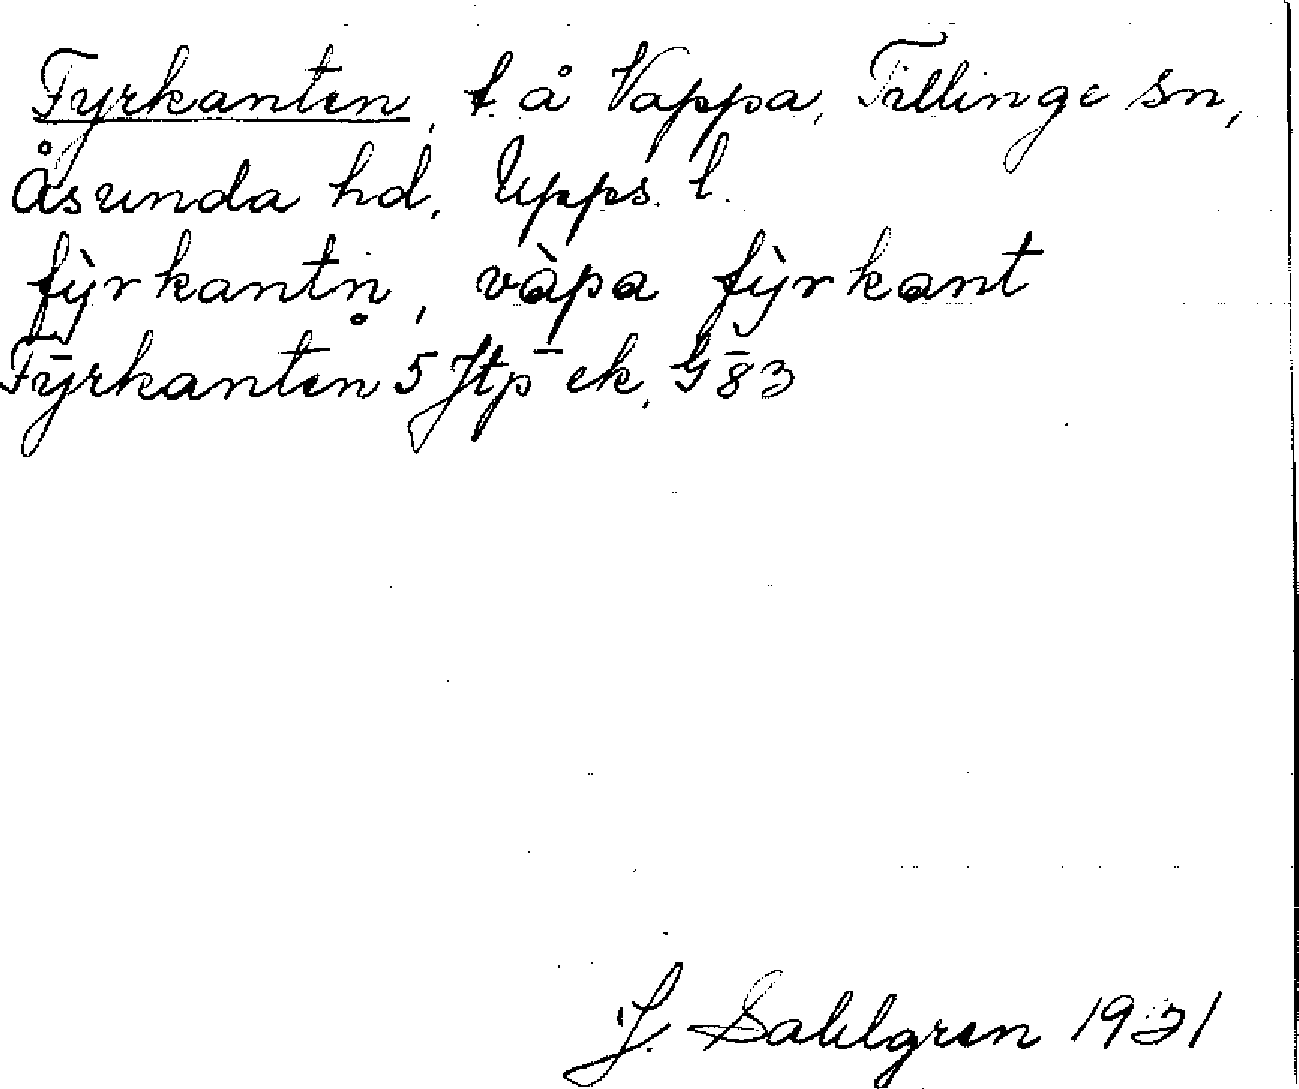 Fyrkanten, t. å Vappa, Tillinge sn,
Åsunda hd, Upps. l.
fỳrkantn̥, vàpa fỳrkant
Fyrkanten 5 Jtp ek. G 83
J. Sahlgren 1931